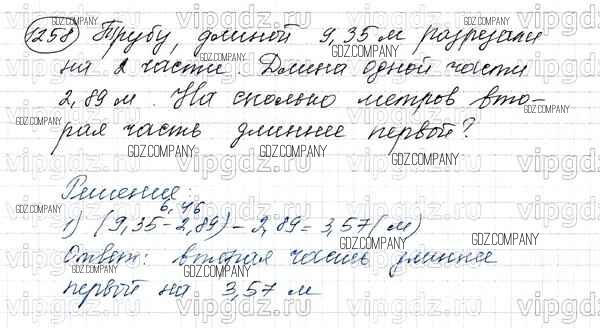 1258 Трубу, длиной 9,35 м разрезали
на 2 части. Длина одной части
2,89 м. На сколько метров вто-
рая часть длиннее первой?
Решение:
6,46
1) (9,35-2,89)-2,89=3,57(м)
Ответ: вторая часть длинне
первой на 3,57 м